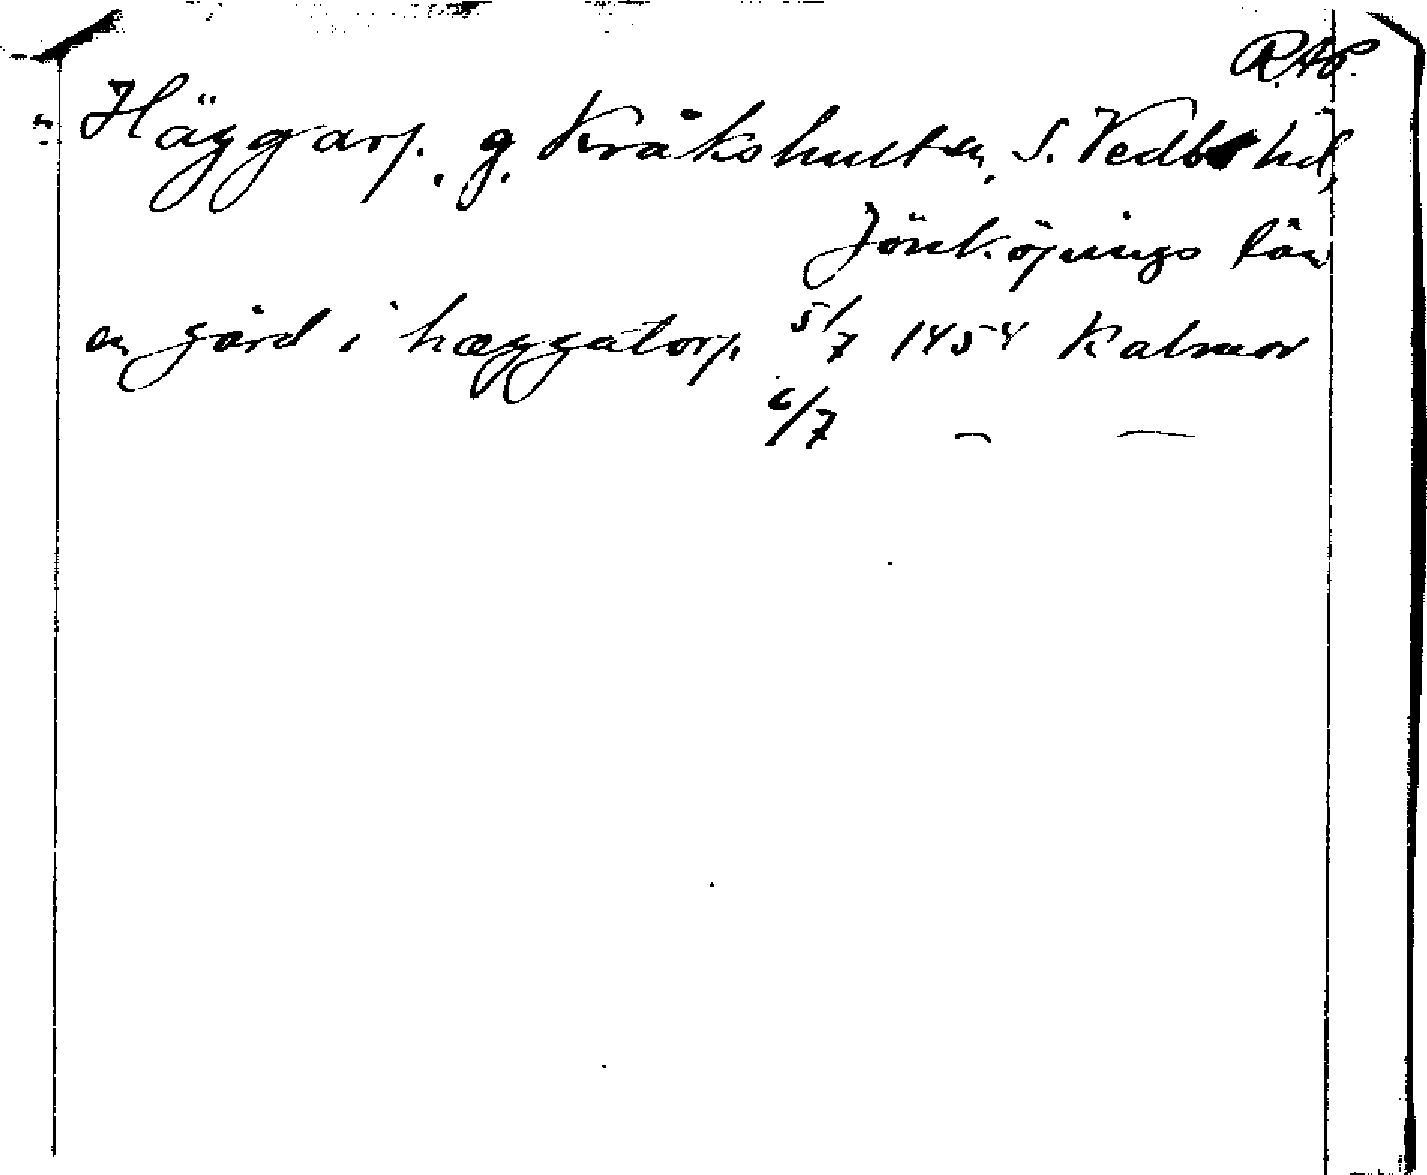 RAP.
Häggarp. g. Kråkshult sn, S. Vedbo hd,
Jönköpings län
en gård i hæggatorp 5/7 1454 Kalmar
6/7 — —